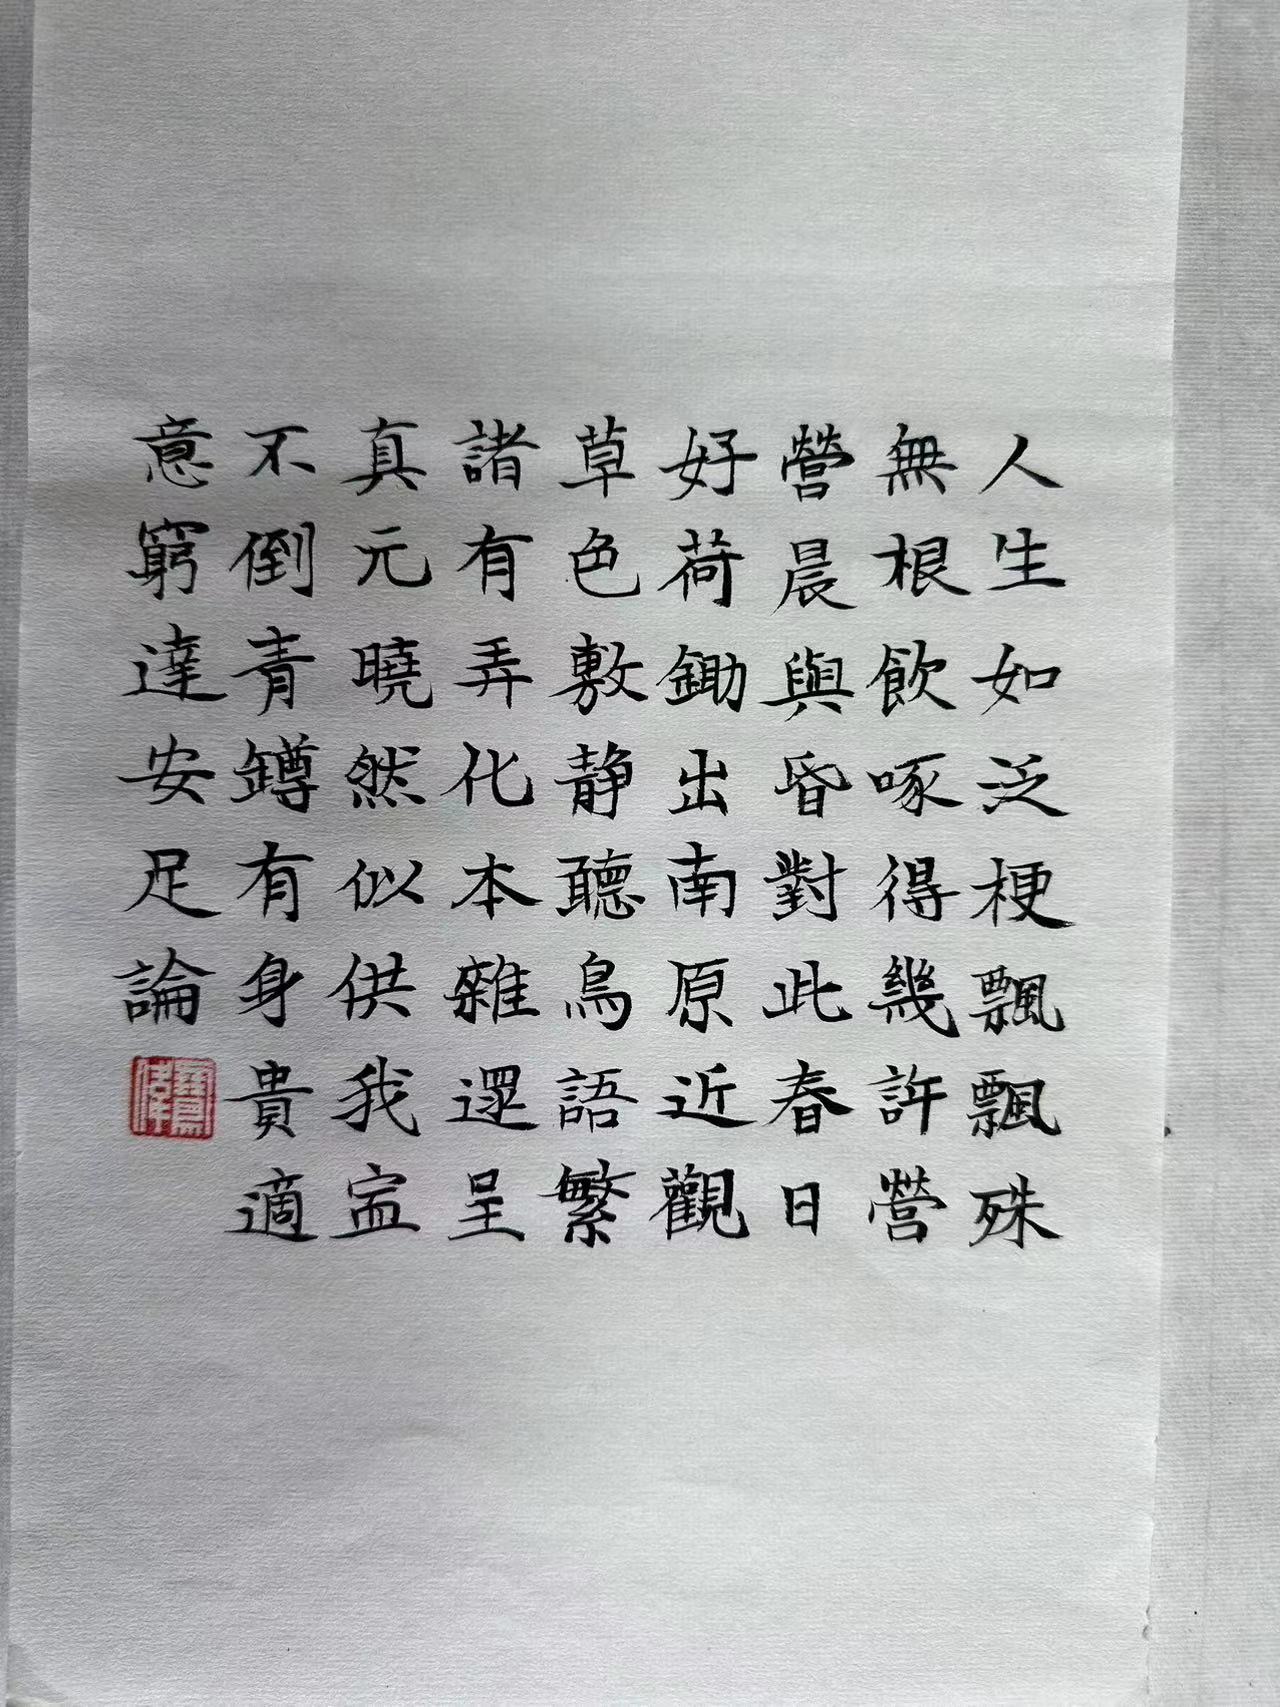 人生如泛梗飄飄殊
無根飲啄得幾許營
營晨與昏對此春日
好荷鋤出南原近觀
草色敷静聽鳥語繁
諸有弄化本雜遝呈
真元曉然似供我寍
不倒青罇有身貴適
意窮達安足論